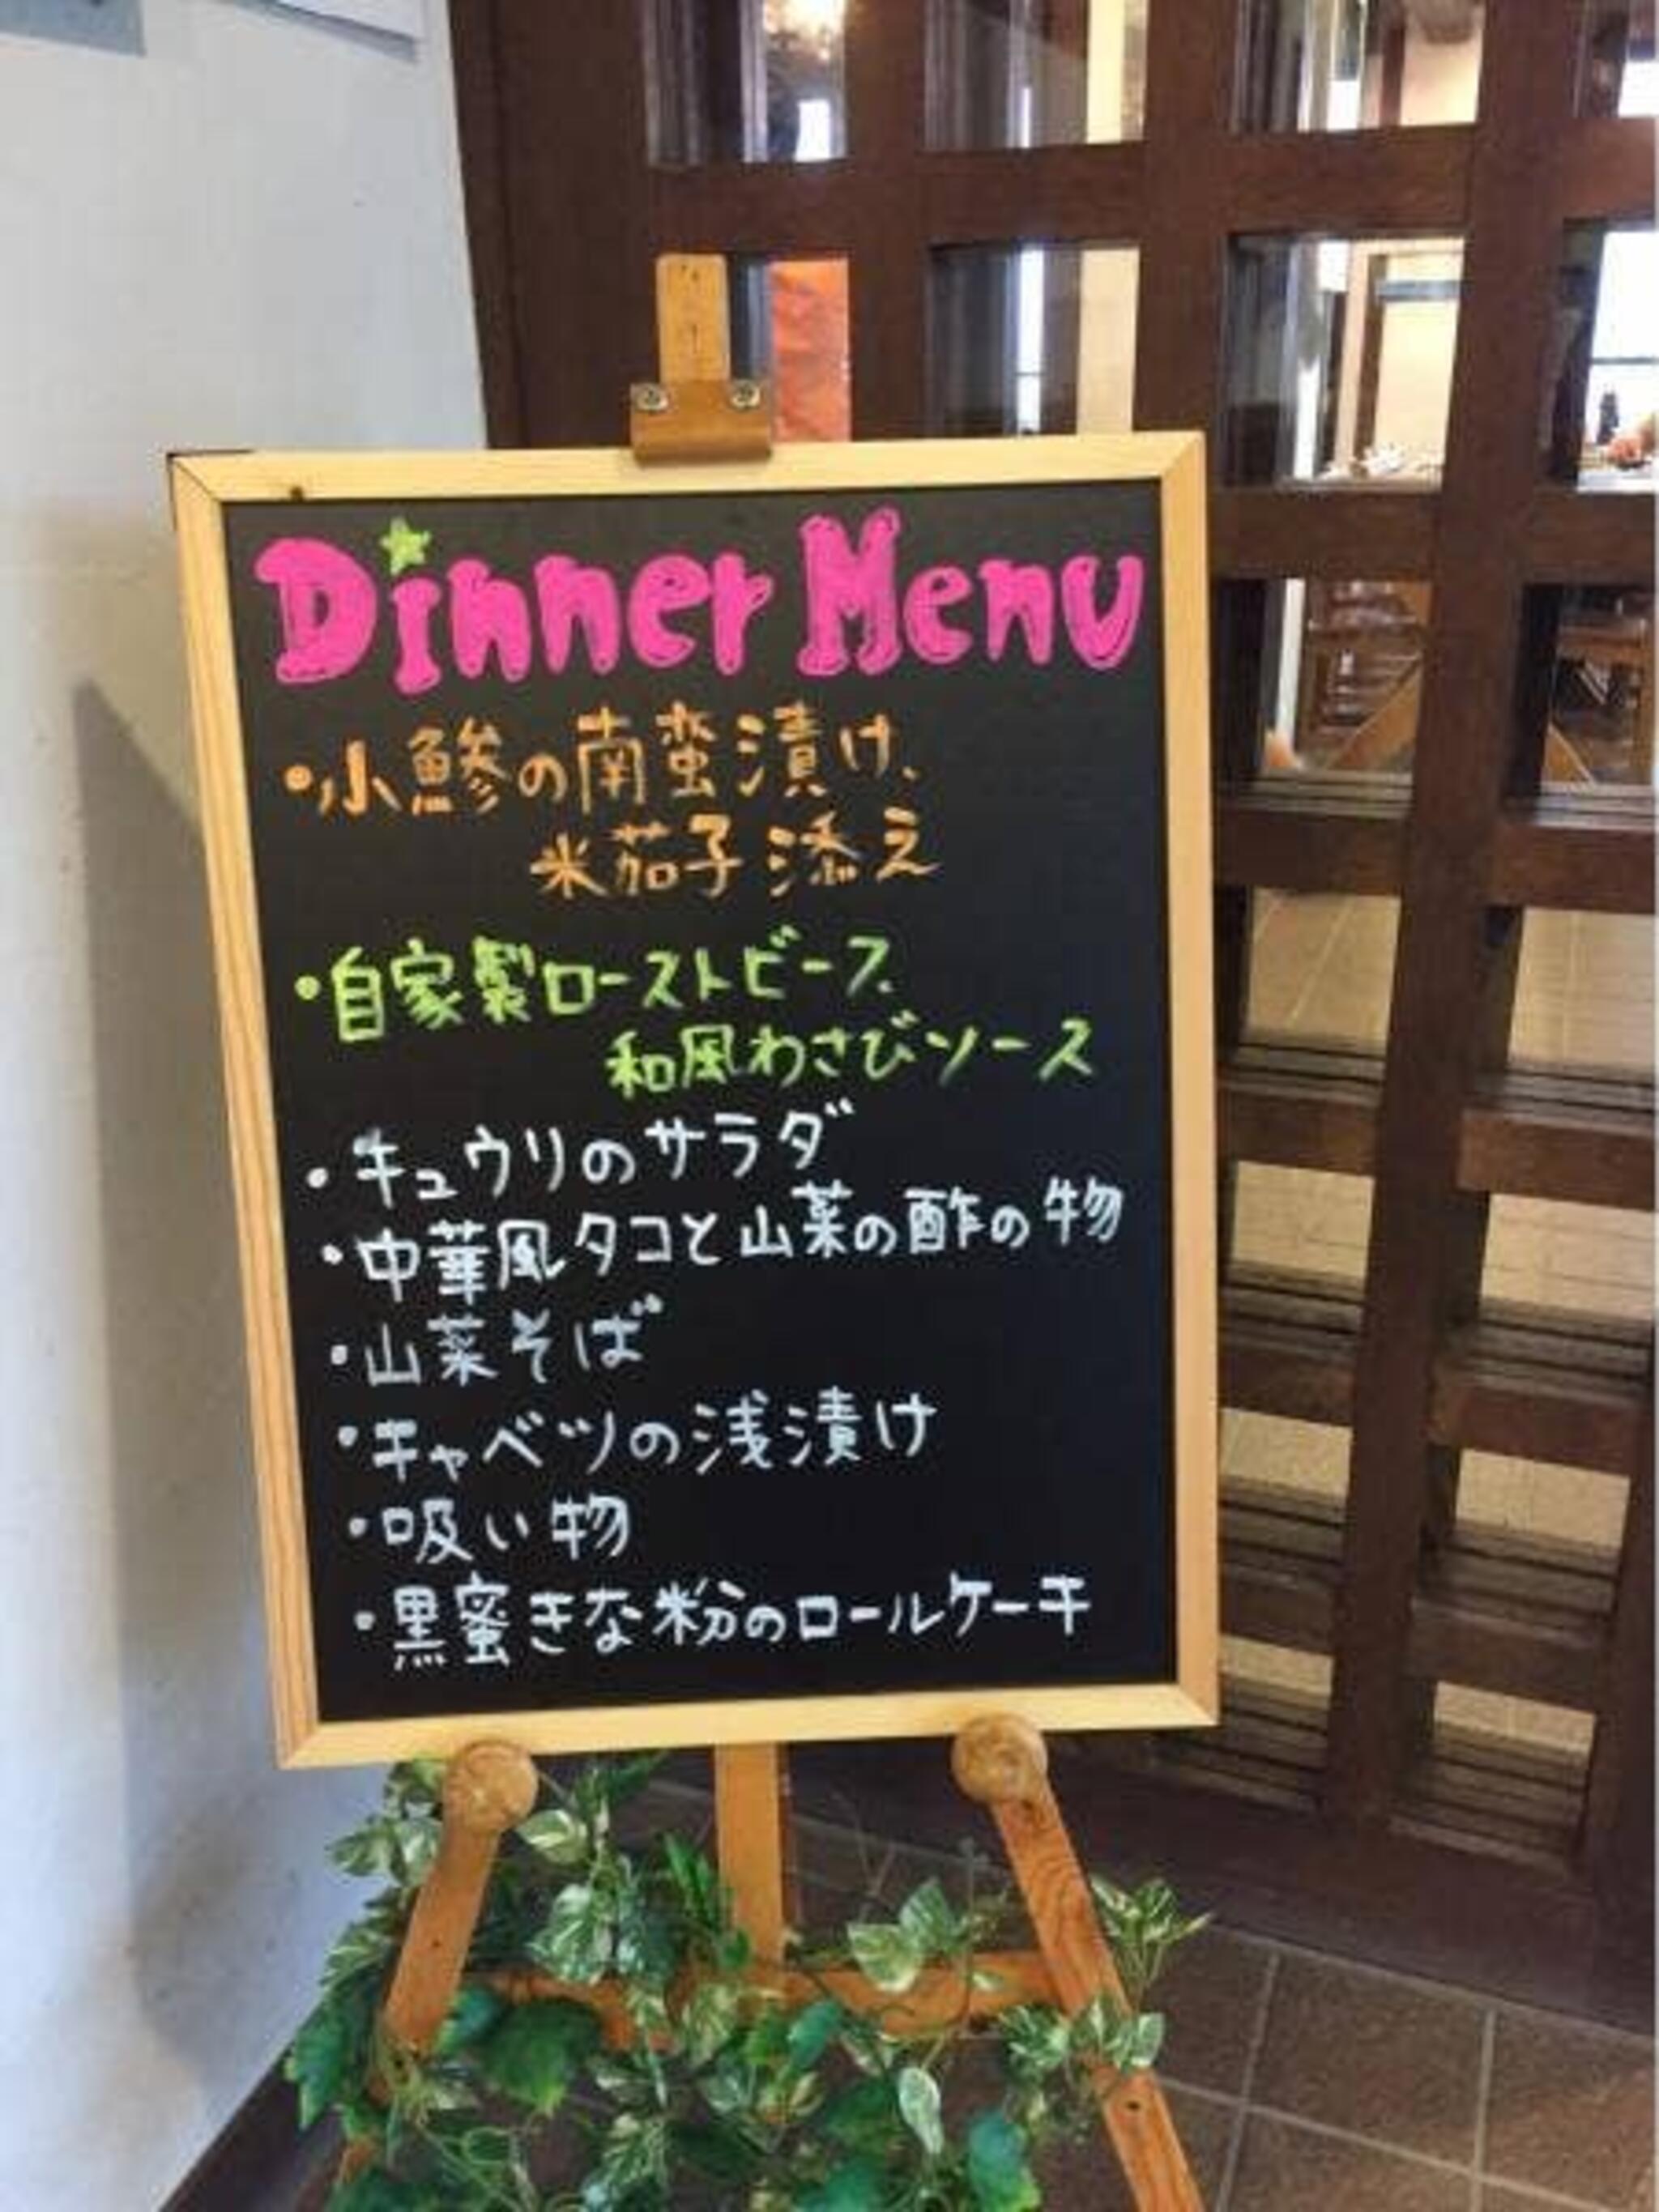 Dinner Menu
・小鯵の南蛮漬け、
米茄子添え
・自家製ローストビーフ、
和風わさびソース
・キュウリのサラダ
・中華風タコと山菜の酢の物
・山菜そば
・キャベツの浅漬け
・吸い物
・黒蜜きな粉のロールケーキ